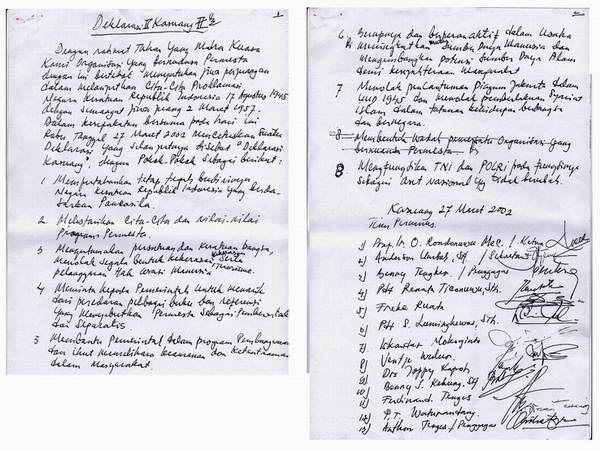 Deklarasi II Kasuang II 1/2
Dengan rahmat Tuhan Yang Maha Kuasa
Kami Organisasi Yang bernuansa Permesta
dengan ini bertekat jiwa perjuangan
dalam melanjutkan Cita-Cita Proklamasi
Negara Kesatuan Republik Indonesia 17 Agustus 1945
dengan Semangat jiwa juang 2 Maret 1957.
Dalam kesepakatan bersama pada hari ini
Rabu Tanggal 27 Maret 2002 mencetuskan Suatu
Deklarasi Yang Selanjutnya disebut "Deklarasi
Kasuang" dengan Pokok-Pokok Sebagai berikut:
1. Mempertahankan tetap tegak berdirinya
Negara Kesatuan Republik Indonesia Yang berda-
sarkan Pancasila.
2. Melestarikan Cita-Cita dan nilai-nilai
Program Permesta.
3 Mengutamakan persatuan dan Kesatuan bangsa,
menolak segala bentuk kekerasan Serta
pelanggaran Hak Asasi Manusia Terorisme.
4 Meminta kepada Pemerintah Untuk menarik
dari peredaran pelbagai buku dan referensi
Yang menyebutkan Permesta Sebagai Pemberontak
dan Separatis.
5 Membantu Pemerintah dalam program Pembangunan
dan Ikut memelihara keamanan dan Ketentraman
dalam Masyarakat.
6. Berupaya dan berperan aktif dalam Usaha
Meningkatkan Sumber Daya Manusia dan
Mengembangkan potensi Sumber Daya Alam
demi kesejahteraan Masyarakat
7 Menolak pencantuman Piagam Jakarta dalam
UUD 1945 dan Menolak pemberlakuan Syariat
Islam dalam tatanan kehidupan berbangsa
dan bernegara.
8 Membentuk Wadah Organisasi Yang
bernuansa Permesta
8. Mengfungsikan TNI dan POLRI pada fungsinya
sebagai Aset Nasional Yg tidak
Kasuang 27 Maret 2002
Tim Perumus.
1) Drop. Ir. O. Rondonuwu Msc / Ketua
2) Anderson Sp. / Sekretaris
3) Benny Tengker. / Penggagas
4) Pdt Renata Ticonuwu, Sth
5) Freke Runtu
6) Pdt S. Lumingkewas, Sth.
7) Iskandar Mokoginta
8) Ventje
9) Drs Joppy
10) Benny S.
11) Ferdinand Tenges
12) P.T. Waturandang
13) Anthon Tenges / Penggagas